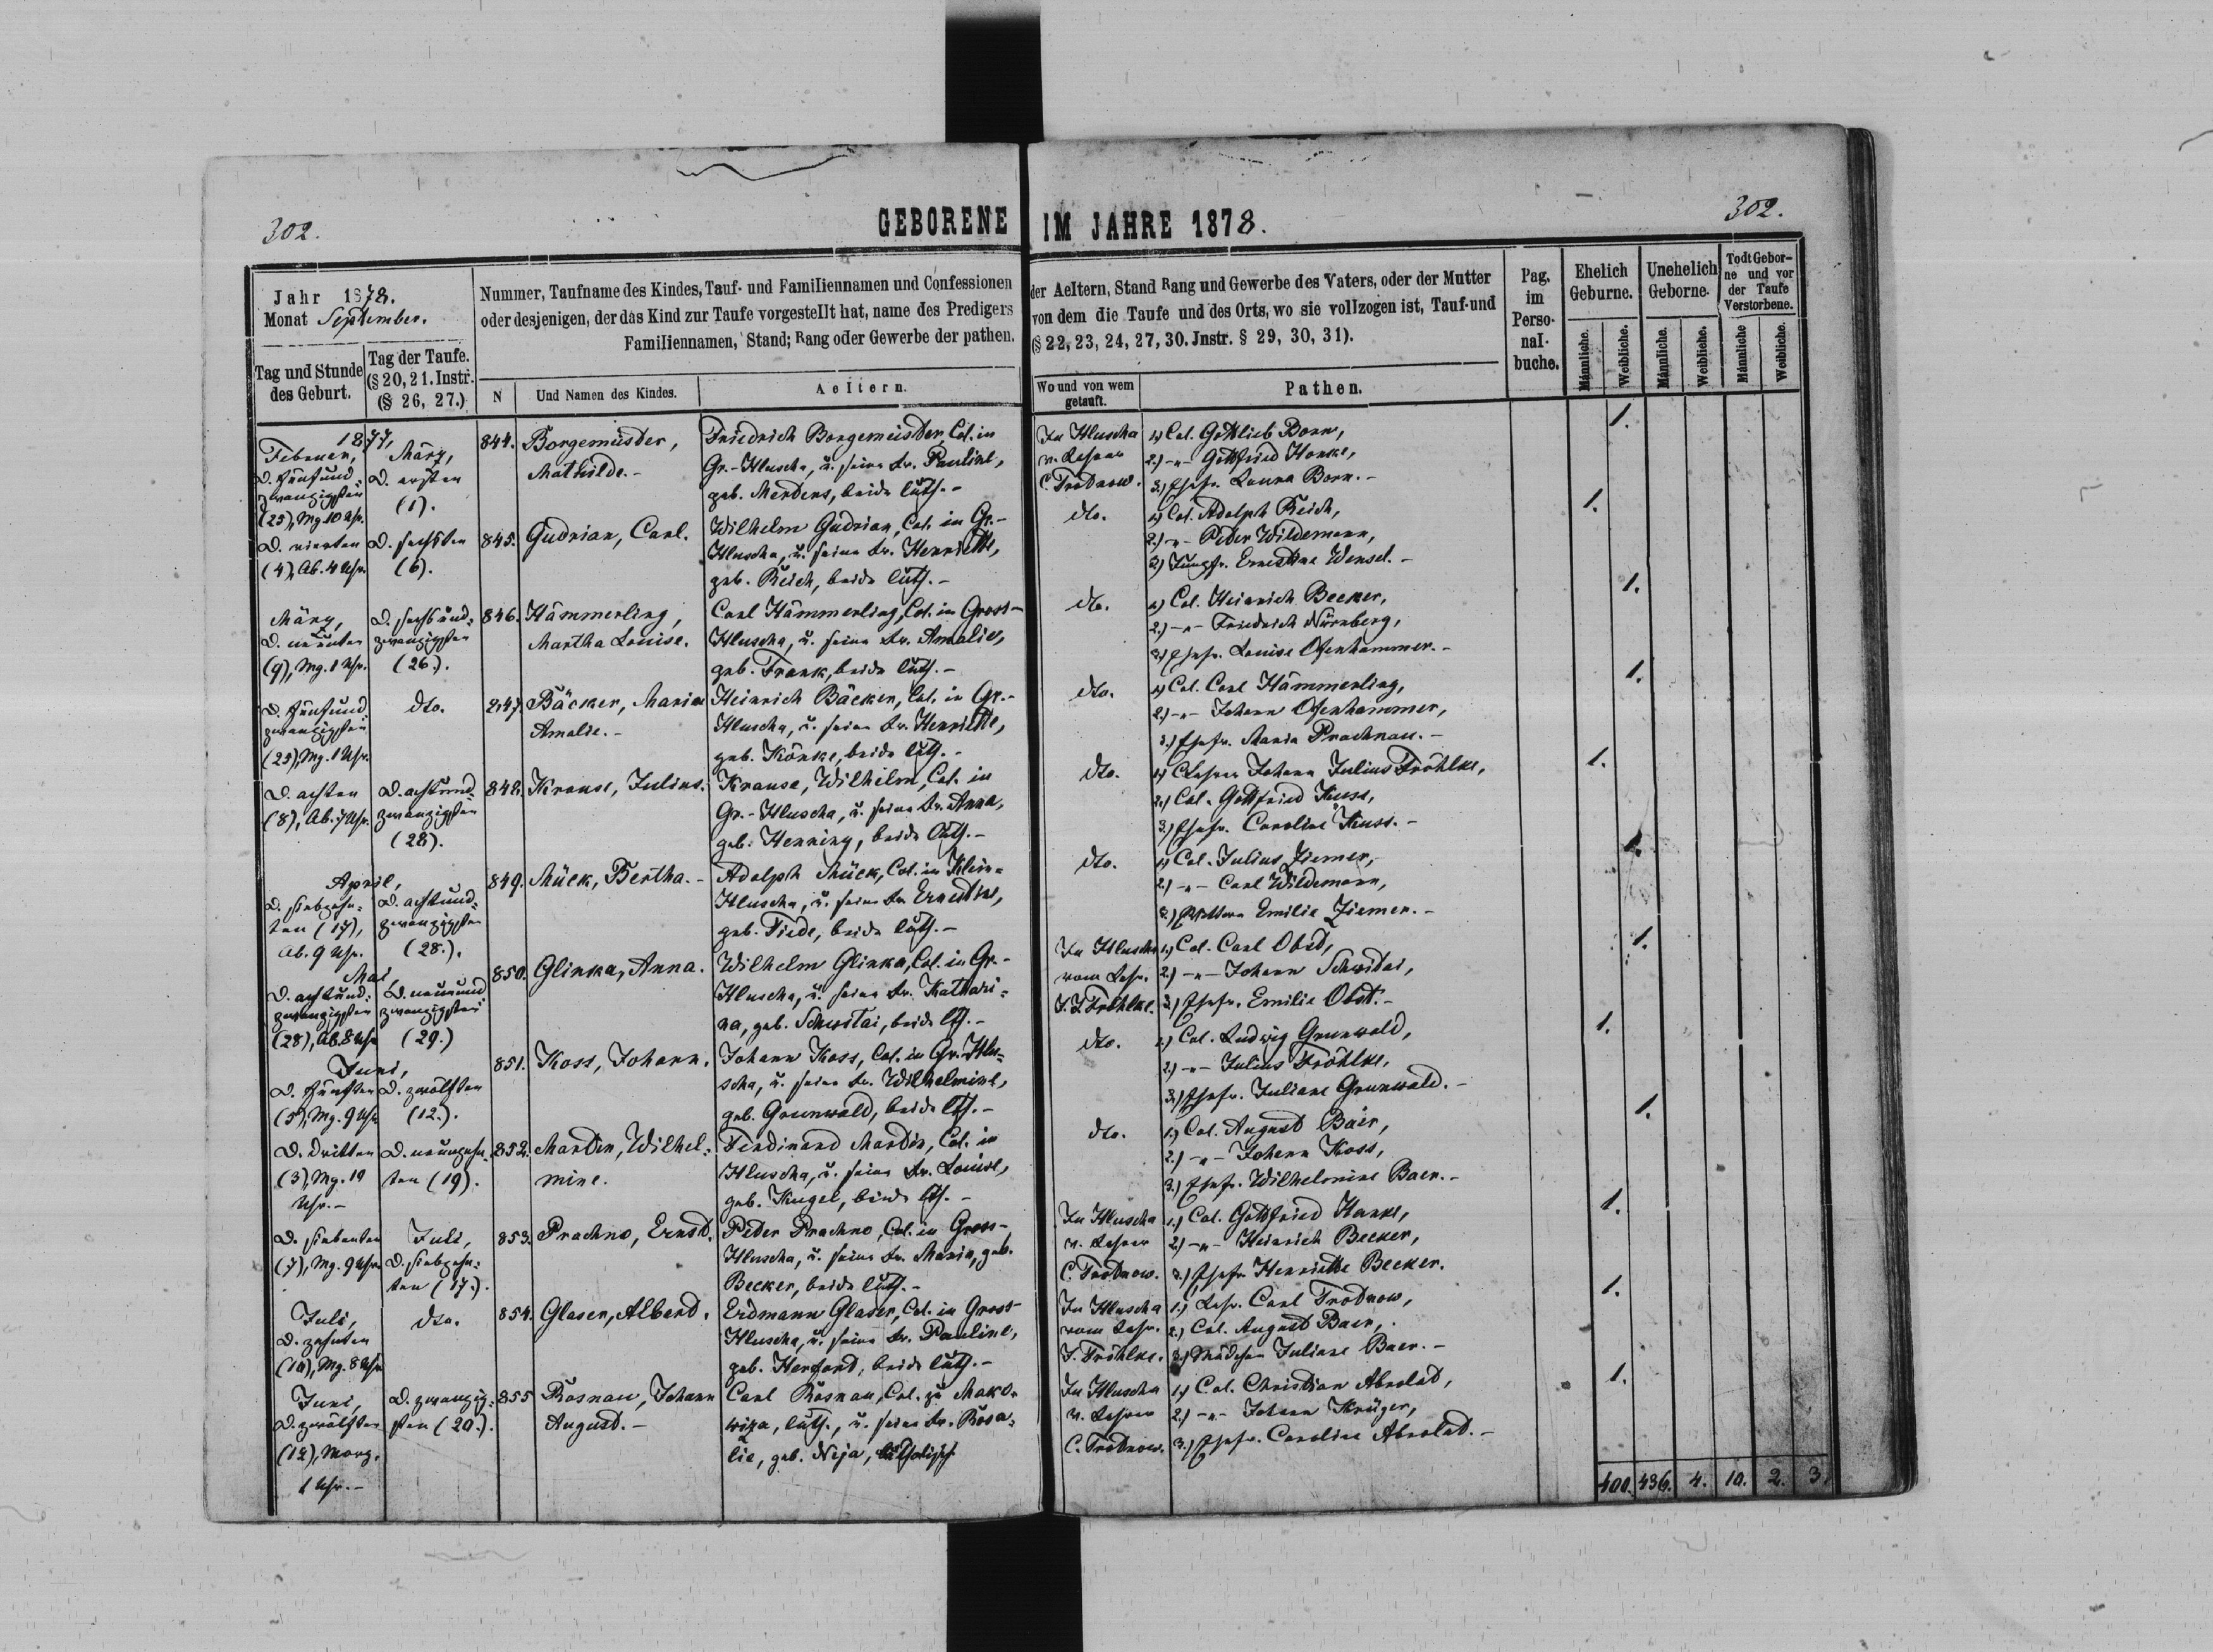 302.
GEBORENE IM JAHRE 1878.
302.
Jahr 1878.
Monat September.
Tag und Stunde
des Geburt.
Tag der Taufe.
(§ 20, 21. Instr.
(§ 26, 27.)
Nummer, Taufname des Kindes, Tauf- und Familiennamen und Confessionen
oder desjenigen, der das Kind zur Taufe vorgestellt hat, name des Predigers
Familiennamen, Stand; Rang oder Gewerbe der pathen.
N
Und Namen des Kindes.
Aeltern.
der Aeltern, Stand Rang und Gewerbe des Vaters, oder der Mutter
von dem die Taufe und des Orts, wo sie vollzogen ist, Tauf-und
(§ 22, 23, 24, 27, 30. Jnstr. § 29, 30, 31).
Wo und von wem
getauft.
Pathen.
Pag.
im
Perso-
nal-
buche.
Ehelich
Geburne.
Unehelich
Geborne.
Todt Gebor-
ne und vor
der Taufe
Verstorbene.
Männliche.
Weibliche.
Männliche.
Weibliche.
Männliche
Weibliche.
1877,
Februar,
D. fünfund-
zwanzigsten
(25), Mg. 10 Uhr.
März,
D. ersten
(1).
844.
Borgemeister,
Mathilde. -
Friedrich Borgemeister, Col. in
Gr.-Hluscha, u. seine Fr. Pauline,
geb. Merdens, beide luth. -
In Hluscha
v. Lehrer
C. Trodnow.
1.) Col. Gottlieb Born,
2.) -"- Gottfried Hanke,
3.) Ehefr. Laura Born. -
1.
D. vierten
(4), Ab. 4 Uhr.
D. sechsten
(6).
845.
Gudrian, Carl.
Wilhelm Gudrian, Col. in Gr.-
Hluscha, u. seine Fr. Henriette,
geb. Reich, beide luth. -
dto.
1.) Col. Adolph Reich,
2.) -"- Peter Wildemann,
3.) Jungfr. Ernestine Wensel. -
1.
März,
D. neunten
(9), Mg. 1 Uhr.
D. sechsund-
zwanzigsten
(26.).
846.
Hämmerling,
Martha Louise.
Carl Hämmerling, Col. in Gross-
Hluscha, u. seine Fr. Amalie,
geb. Frank, beide luth. -
dto.
1.) Col. Heinrich Becker,
2.) -"- Friedrich Nürnberg,
3.) Ehefr. Louise Ofenhammer. -
1.
D. fünfund-
zwanzigsten
(25), Mg. 1 Uhr.
dto.
847.
Bäcker, Maria
Amalie. -
Heinrich Bäcker, Col. in Gr.-
Hluscha, u. seine Fr. Henriette,
geb. Könke, beide luth. -
dto.
1.) Col. Carl Hämmerling,
2.) -"- Johann Ofenhammer,
3.) Ehefr. Maria Prachnau. -
1.
D. achten
(8), Ab. 7 Uhr.
D. achtund-
zwanzigsten
(28).
848.
Krause, Julius.
Krause, Wilhelm, Col. in
Gr.-Hluscha, u. seine Fr. Anna,
geb. Henning, beide luth. -
dto.
1.) Lehrer Johann Julius Fröhlke,
2.) Col. Gottfried Kuss,
3.) Ehefr. Caroline Kuss. -
1.
April,
D. siebzehn-
ten (17),
Ab. 9 Uhr.
D. achtund-
zwanzigsten
(28.).
849.
Mück, Bertha. -
Adolph Mück, Col. in Klein-
Hluscha, u. seine Fr. Ernestine,
geb. Tiede, beide luth. -
dto.
1.) Col. Julius Ziemer,
2.) -"- Carl Wildemann,
3.) Emilie Ziemer. -
1.
Mai,
D. achtund-
zwanzigsten
(28), Ab. 8 Uhr
D. neunund-
zwanzigsten
(29.)
850.
Glinka, Anna.
Wilhelm Glinka, Col. in Gr.-
Hluscha, u. seine Fr. Kathari-
na, geb. Schwitai, beide lth. -
In Hluscha
vom Lehr.
J. J. Fröhlke.
1.) Col. Carl Obst,
2.) -"- Johann Schwitai,
3.) Ehefr. Emilie Obst. -
1.
Juni,
D. fünften
(5), Mg. 9 Uhr
D. zwölften
(12.).
851.
Koss, Johann.
Johann Koss, Col. in Gr. Hlu-
scha, u. seine Fr. Wilhelmine,
geb. Grunwald, beide lth. -
dto.
1.) Col. Ludwig Grunwald,
2.) -"- Julius Fröhlke,
3.) Ehefr. Juliane Grunwald. -
1.
D. dritten
(3), Mg. 10
Uhr. -
D. neunzehn-
ten (19).
852.
Martin, Wilhel-
mine.
Ferdinand Martin, Col. in
Hluscha, u. seine Fr. Louise,
geb. Kugel, beide lth. -
dto.
1.) Col. August Baer,
2.) -"- Johann Koss,
3.) Ehefr. Wilhelmine Baer. -
1.
D. siebenten
(7), Mg. 9 Uhr.
Juli,
D. siebzehn-
ten (17.).
853.
Prachno, Ernst.
Peter Prachno, Col. in Gross-
Hluscha, u. seine Fr. Maria, geb.
Becker, beide luth. -
In Hluscha
v. Lehrer
C. Trodnow.
1.) Col. Gottfried Hanke,
2.) -"- Heinrich Becker,
3.) Ehefr. Henriette Becker.
1.
Juli,
D. zehnten
(10), Mg. 8 Uhr
dto.
854.
Glaser, Albert.
Erdmann Glaser, Col. in Gross-
Hluscha, u. seine Fr. Pauline,
geb. Herford, beide luth. -
In Hluscha
vom Lehr.
J. Fröhlke.
1.) Lehr. Carl Trodnow,
2.) Col. August Baer,
3.) Mädchen Juliane Baer. -
1.
Juni,
D. zwölften
(12), Morg.
1 Uhr. -
D. zwanzig-
sten (20.).
855
Rosnau, Johann
August. -
Carl Rosnau, Col. zu Mako-
wiza, luth., u. seine Fr. Rosa-
lie, geb. Neja, katholisch
In Hluscha
v. Lehrer
C. Trodnow.
1.) Col. Christian Abrolat,
2.) -"- Johann Krüger,
3.) Ehefr. Caroline Abrolat. -
1.
400. 436. 4. 10. 2. 3.